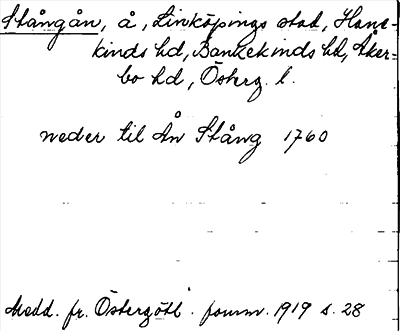 Stångån, å, Linköpings stad, Hane-
kinds hd, Bankekinds hd, Åker-
bo hd, Österg. l.
neder til Ån Stång 1760
Medd. fr. Östergötl. fornm. 1919 s. 28